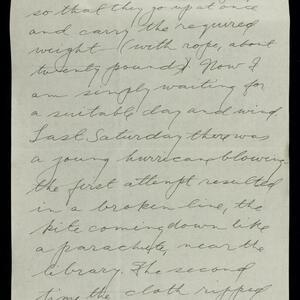 so that they go up at once
and carry the required
weight (with rope, about
twenty pounds) Now I
am simply waiting for
a suitable day and wind.
Last Saturday there was
a young hurricane blowing.
the first attempt resulted
in a broken line, the
kite coming down like
a parachute, near the
library. The second
time the cloth ripped